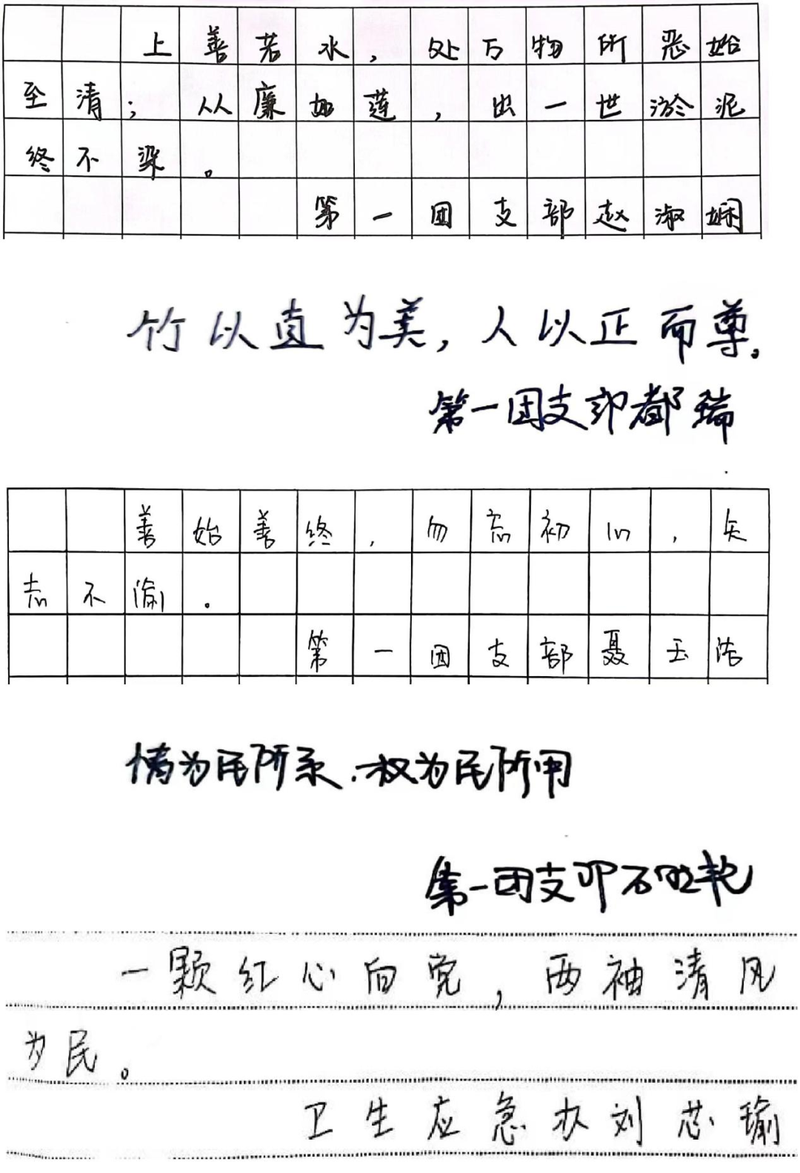 上善若水，处万物所恶始
至清；从廉如莲，出一世淤泥
终不染。
第一团支部赵淑娴
竹以直为美，人以正而尊。
第一团支部都瑞
善始善终，勿忘初心，矢
志不渝。
第一团支部聂玉洁
情为民所系、权为民所用
第一团支部石
一颗红心向党，两袖清风
为民。
卫生应急办刘芯瑜